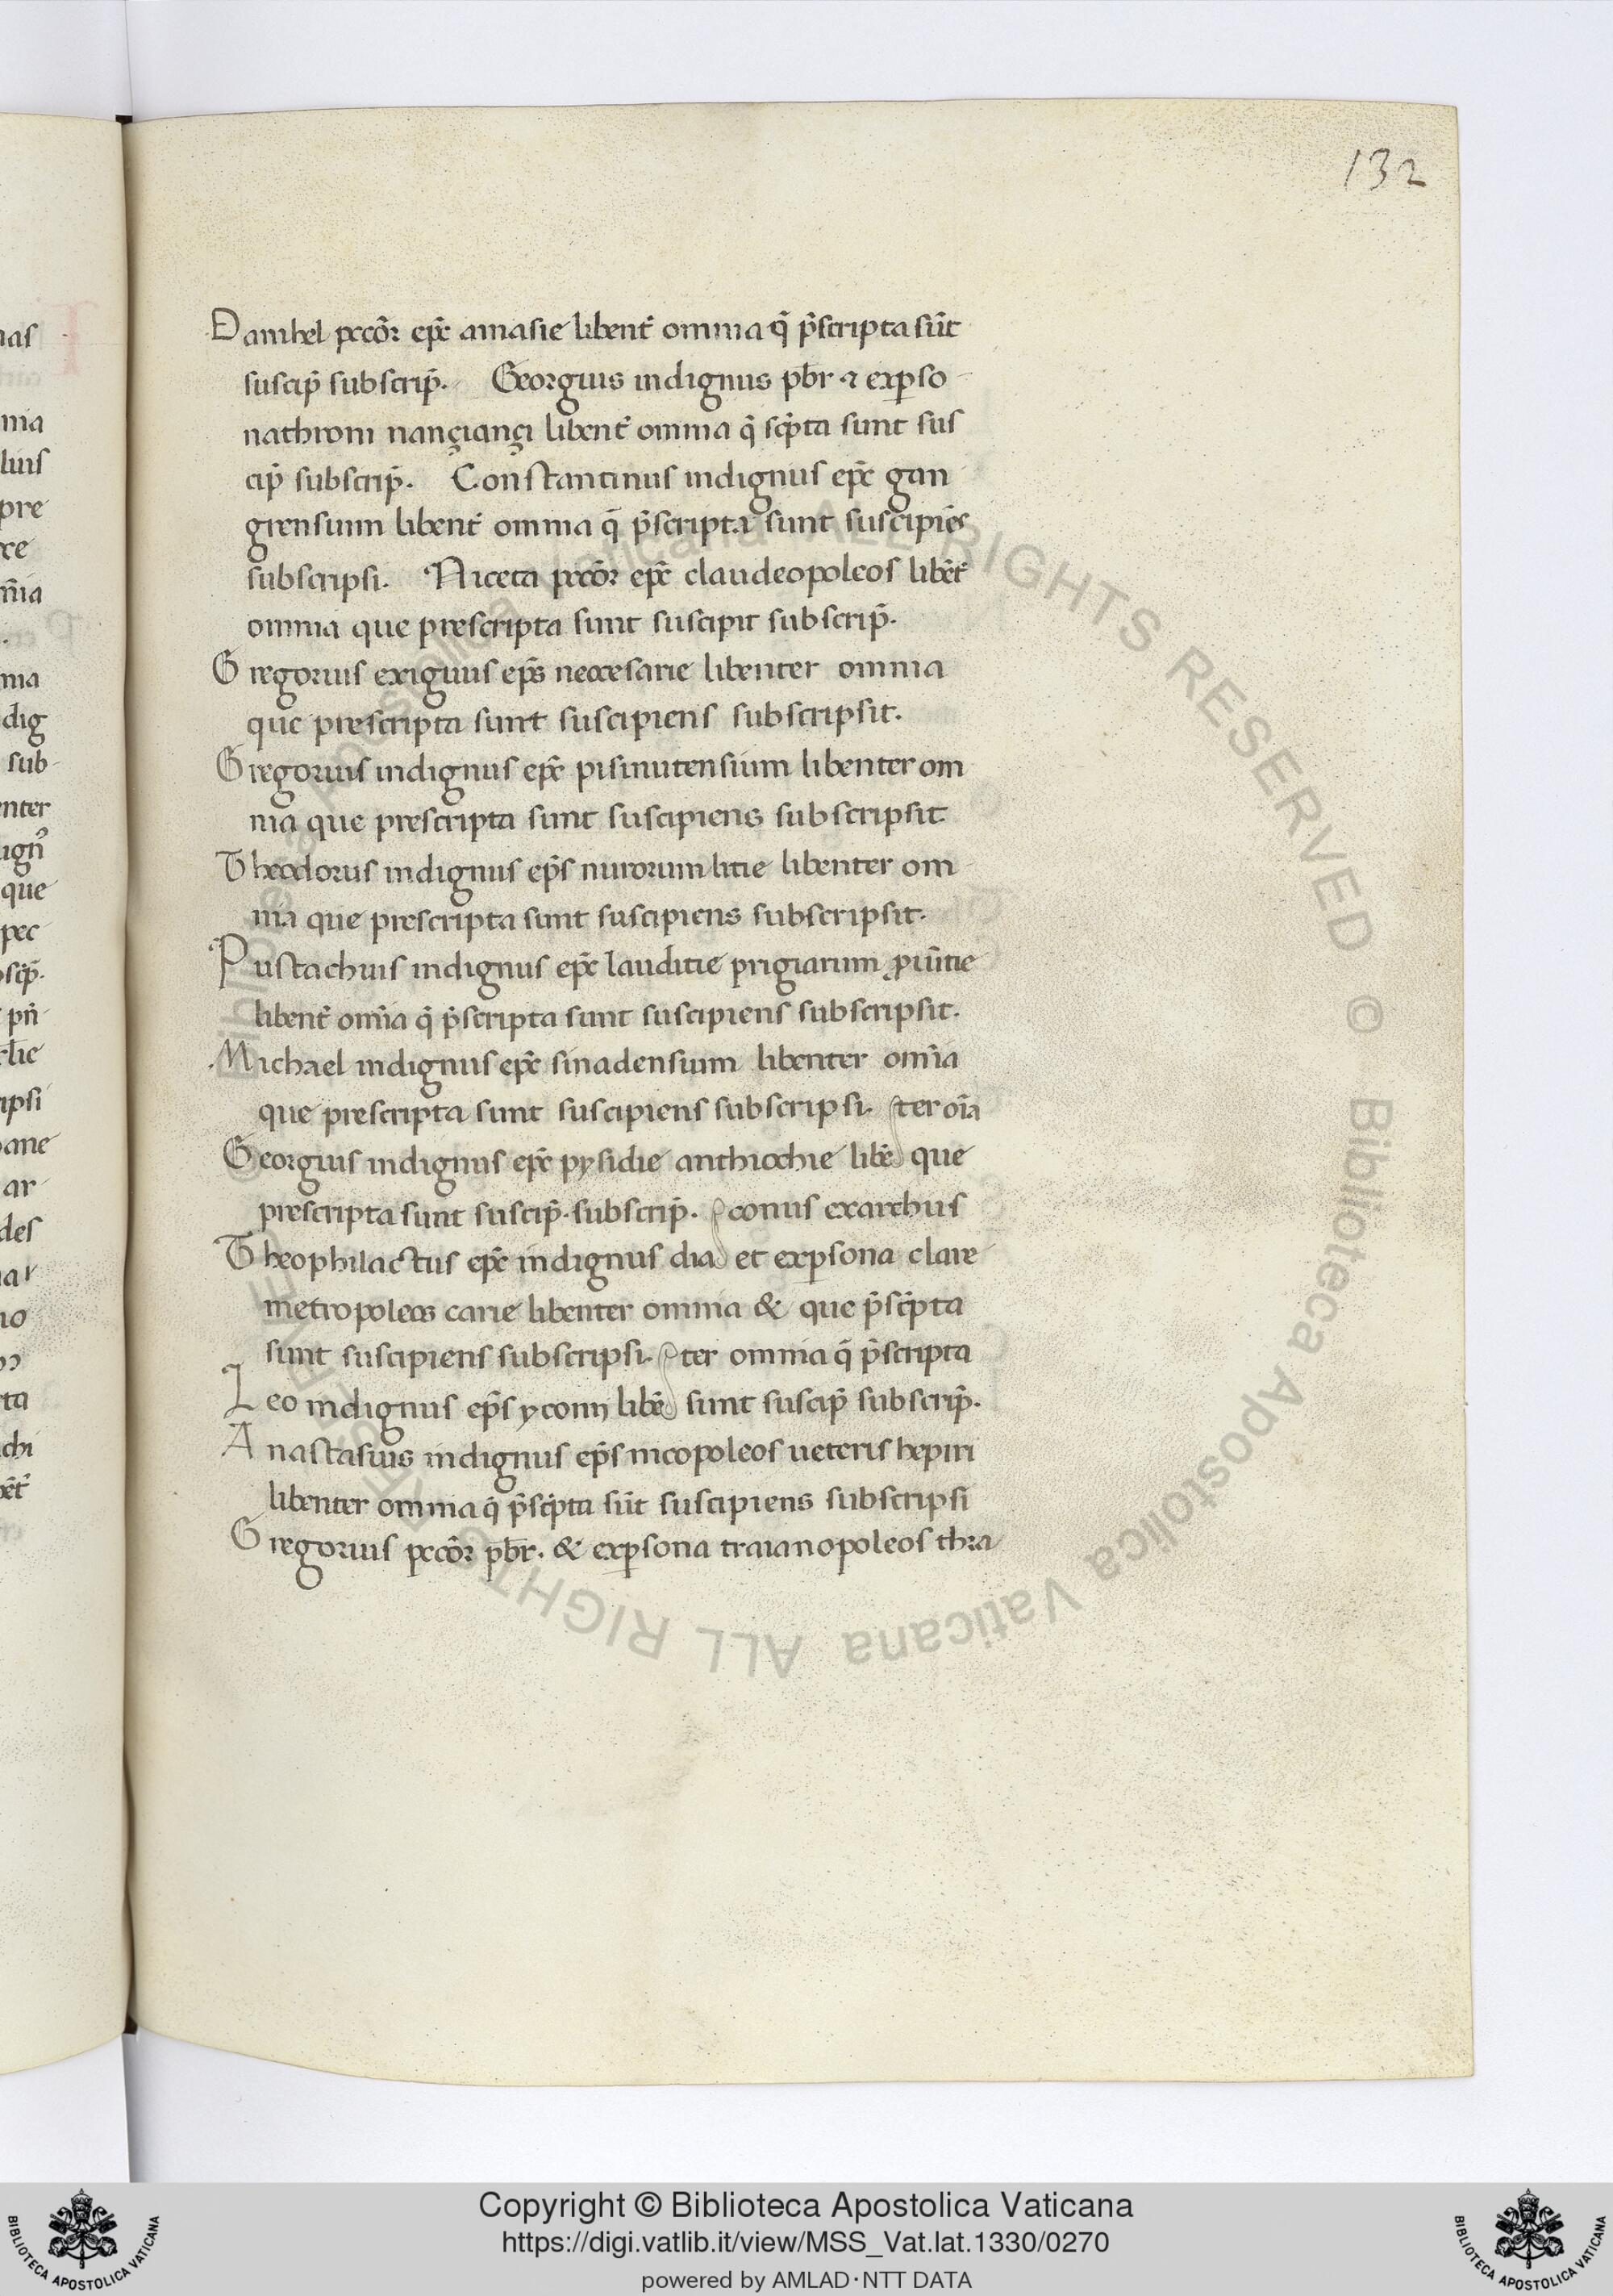 132
Danihel peccōr epc̄ amasie libent̄ omnia q̄ p̄scripta sūt
suscip̄ subscrip̄. Georgius indignus pb̄r ⁊ exp̱so
nathroni nançiançi libent̄ omnia q̄ sc̄pta sunt sus
cip̄ subscrip̄. Constantinus indignus epc̄ gan
grensium libent̄ omnia q̄ p̄scripta sunt suscipiēs
subscripsi. Niceta peccōr epc̄ claudeopoleos libēt̄
omnia que prescripta sunt suscipit subscrip̄.
Gregorius exiguus ep̄s neocesarie libenter omnia
que prescripta sunt suscipiens subscripsit.
Gregorius indignus epc̄ pisinutensium libenter om
nia que prescripta sunt suscipiens subscripsit
Theodorus indignus ep̄s mirorum litie libenter om
nia que prescripta sunt suscipiens subscripsit.
Eustachius indignus epc̄ lauditie prigiarum ꝓuītie
libent̄ om̄ia q̄ p̄scripta sunt suscipiens subscripsit.
Michael indignus epc̄ sinadensium libenter om̄ia
que prescripta sunt suscipiens subscripsi. ter oīa
Georgius indignus epc̄ pysidie anthiochie libē que
prescripta sunt suscip̄. subscrip̄. conus exarchus
Theophilactus epc̄ indignus dia et exp̱sona clare
metropoleos carie libenter omnia & que p̄sc̄pta
sunt suscipiens subscripsi. ter omnia q̄ p̄scripta
Leo indignus ep̄s yconij libē sunt suscip̄ subscrip̄.
Anastasius indignus ep̄s nicopoleos ueteris hepiri
libenter omnia q̄ p̄sc̄pta sūt suscipiens subscripsi
Gregorius peccōr pb̄r. & exp̱sona traianopoleos thra
Copyright © Biblioteca Apostolica Vaticana
https://digi.vatlib.it/view/MSS_Vat.lat.1330/0270
powered by AMLAD·NTT DATA